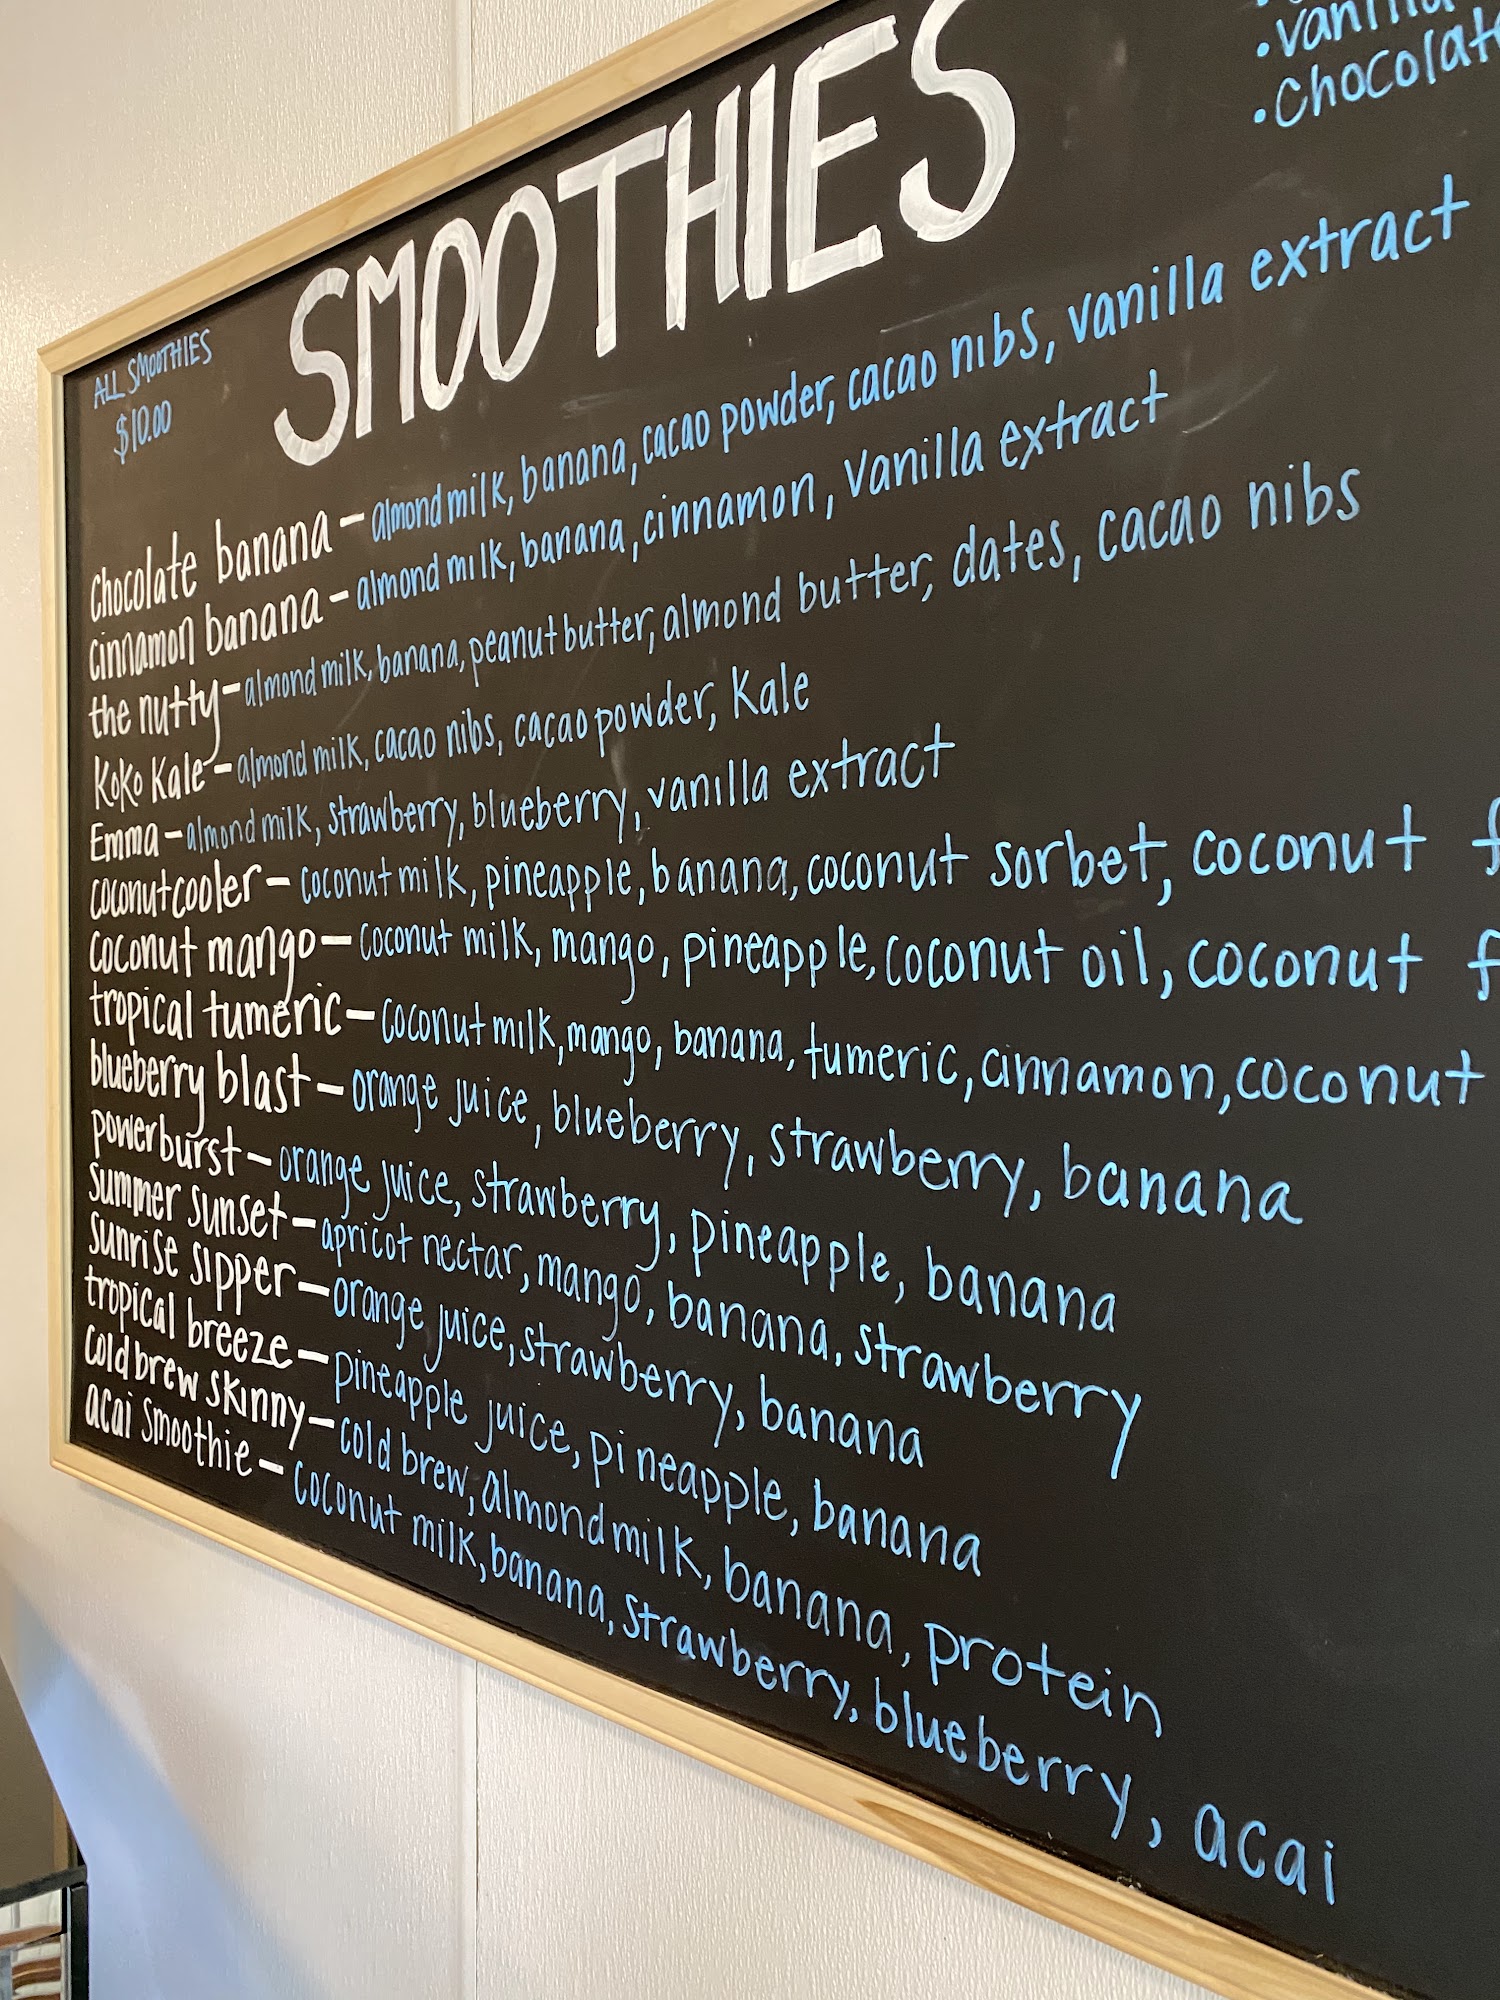 SMOOTHIES
ALL SMOOTHIES
$10.00
chocolate banana – almond milk, banana, cacao powder, cacao nibs, vanilla extract
cinnamon banana – almond milk, banana, cinnamon, vanilla extract
the nutty – almond milk, banana, peanut butter, almond butter, dates, cacao nibs
Koko Kale – almond milk, cacao nibs, cacao powder, Kale
Emma – almond milk, strawberry, blueberry, vanilla extract
coconut cooler – coconut milk, pineapple, banana, coconut sorbet, coconut
coconut mango – coconut milk, mango, pineapple, coconut oil, coconut
tropical tumeric – coconut milk, mango, banana, tumeric, cinnamon, coconut
blueberry blast – orange juice, blueberry, strawberry, banana
powerburst – orange juice, strawberry, pineapple, banana
summer sunset – apricot nectar, mango, banana, strawberry
sunrise sipper – orange juice, strawberry, banana
tropical breeze – pineapple juice, pineapple, banana
cold brew skinny – cold brew, almond milk, banana, protein
acai smoothie – coconut milk, banana, strawberry, blueberry, acai